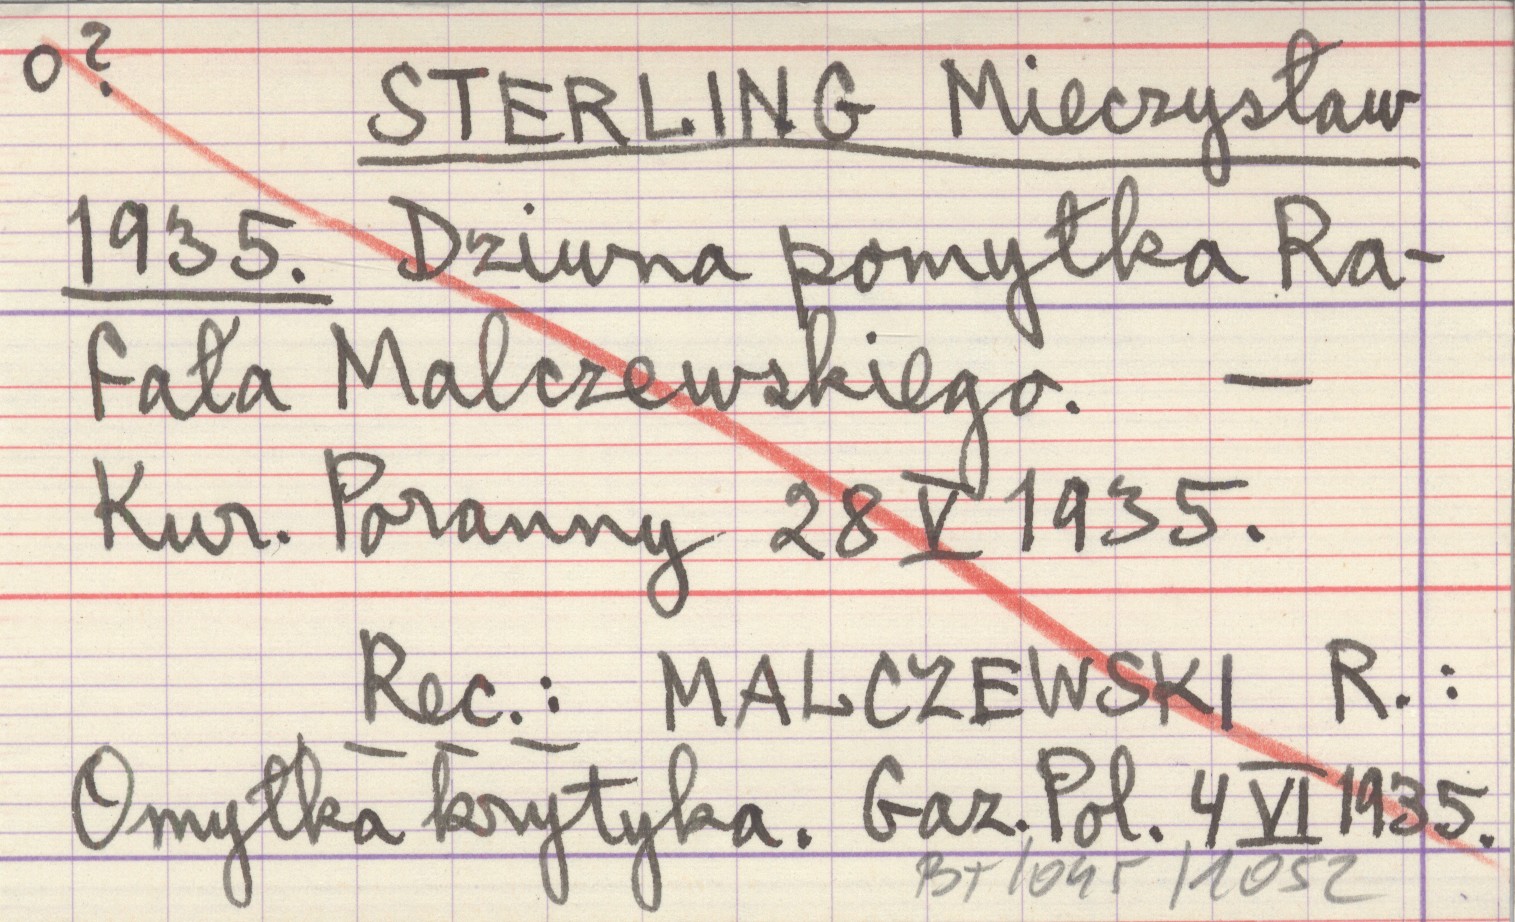 o?
STERLING Mieczysław
1935. Dziwna pomyłka Ra-
fała Malczewskiego. —
Kur. Poranny 28 V 1935.
Rec.: MALCZEWSKI R.:
Omyłka krytyka. Gaz. Pol. 4 VI 1935.
/1052